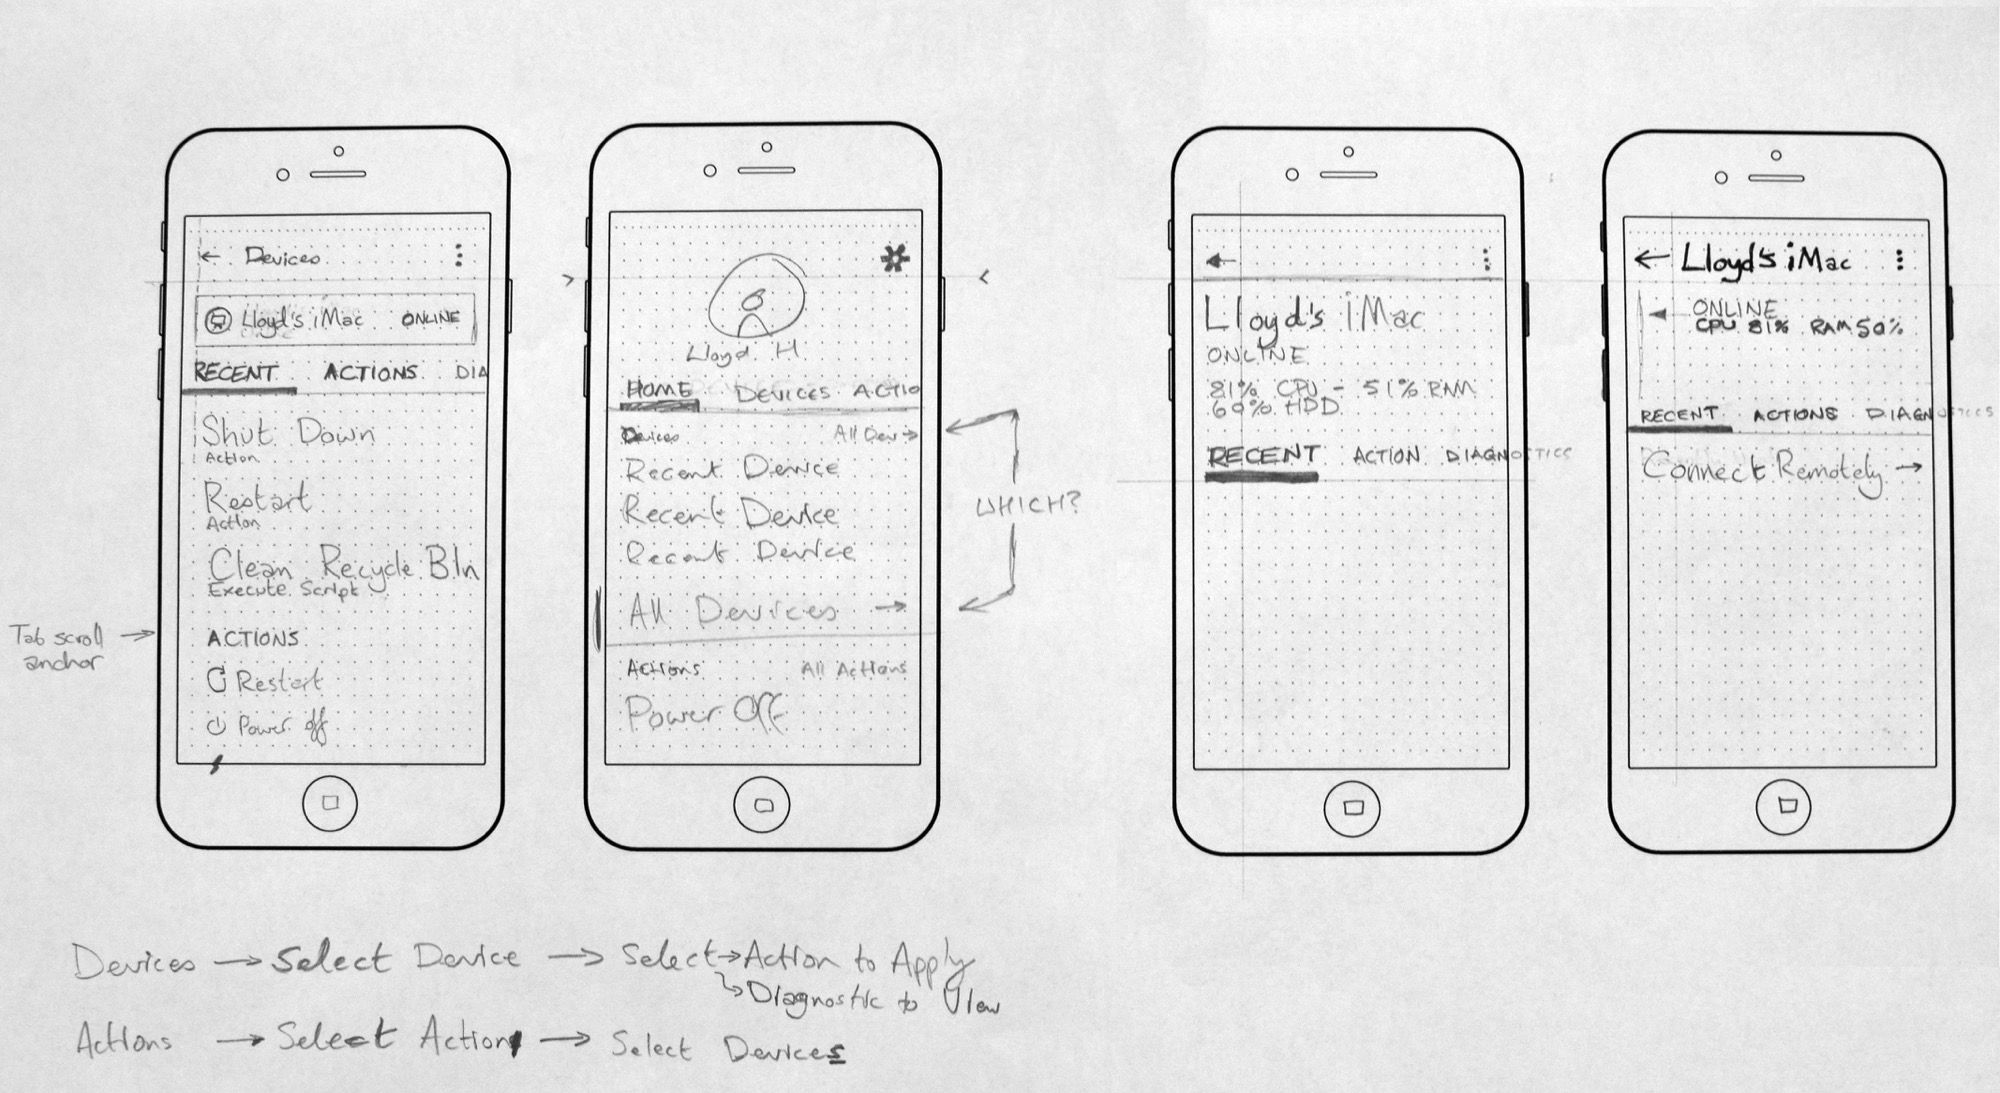 ← Devices
Lloyd's iMac ONLINE
RECENT ACTIONS DIA
Shut Down
Action
Restart
Action
Clean Recycle BIn
Execute Script
ACTIONS
Restart
Power off
Tab scroll
anchor
Lloyd H
HOME DEVICES ACTIO
Devices All Dev →
Recent Device
Recent Device
Recent Device
All Devices →
Actions All Actions
Power Off
WHICH?
←
Lloyd's iMac
ONLINE
81% CPU - 51% RAM
60% HDD
RECENT ACTION DIAGNOSTICS
← Lloyd's iMac
ONLINE
CPU 81% RAM 50%
RECENT ACTIONS DIAGNOSTICS
Connect Remotely →
Devices → Select Device → Select → Action to Apply
↳ Diagnostic to View
Actions → Select Action → Select Devices